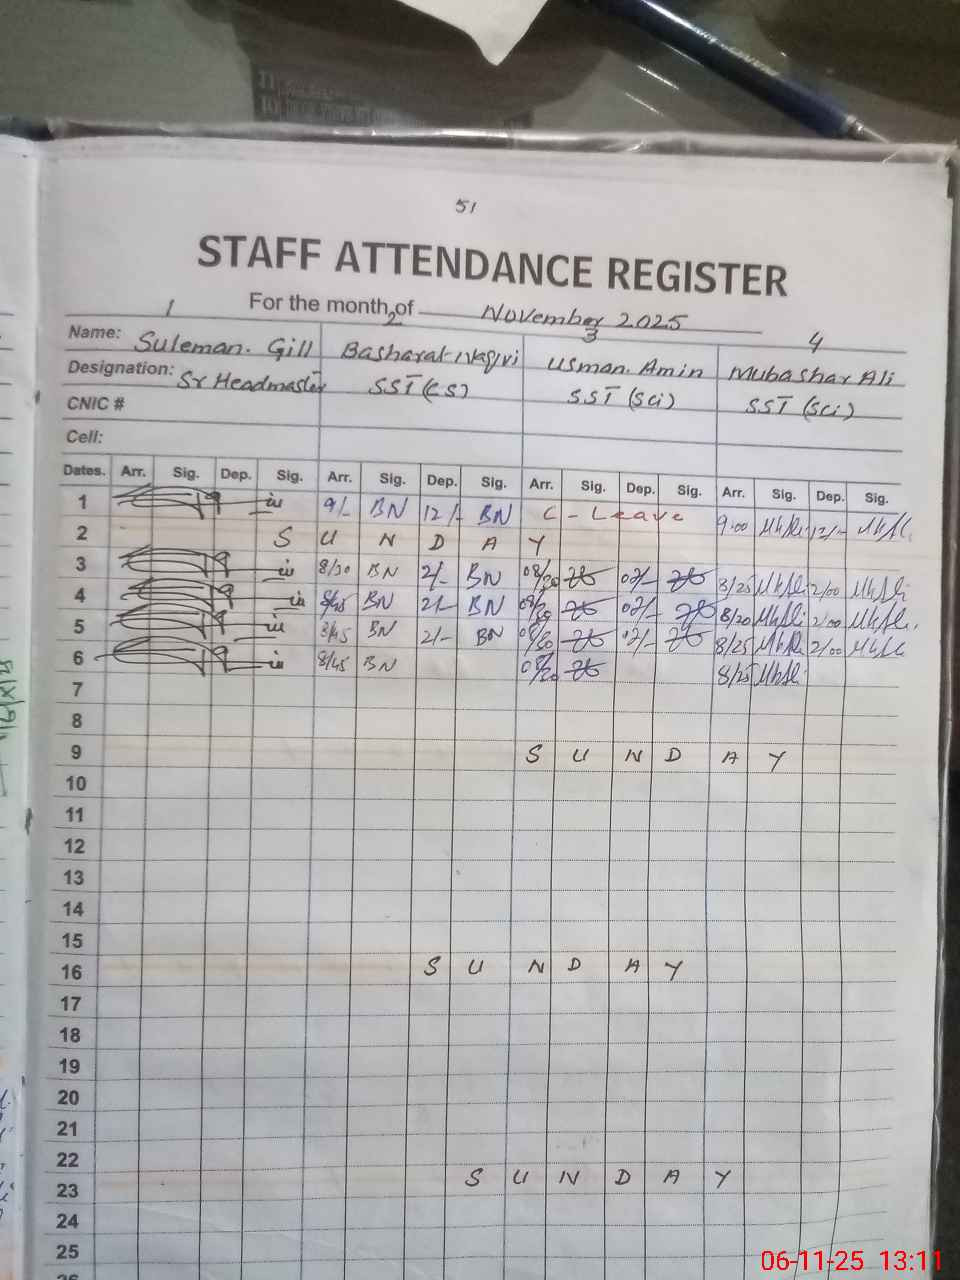 51
STAFF ATTENDANCE REGISTER
For the month of November 2025
1 2 3 4
Name: Suleman. Gill Basharat Naqvi Usman. Amin Mubashar Ali
Designation: Sr Headmaster SST (CS) SST (Sci) SST (Sci)
CNIC #
Cell:
Dates. Arr. Sig. Dep. Sig. Arr. Sig. Dep. Sig. Arr. Sig. Dep. Sig. Arr. Sig. Dep. Sig.
1 9/- BN 12/- BN C - Leave 9.00 12/-
2 S U N D A Y
3 8/30 BN 2/- BN 08/30 02/- 8/25 2/00
4 8/45 BN 2/- BN 08/30 02/- 8/20 2/00
5 8/45 BN 2/- BN 08/30 02/- 8/25 2/00
6 8/45 BN 08/30 8/25
7
8
9 S U N D A Y
10
11
12
13
14
15
16 S U N D A Y
17
18
19
20
21
22
23 S U N D A Y
24
25
26
06-11-25 13:11